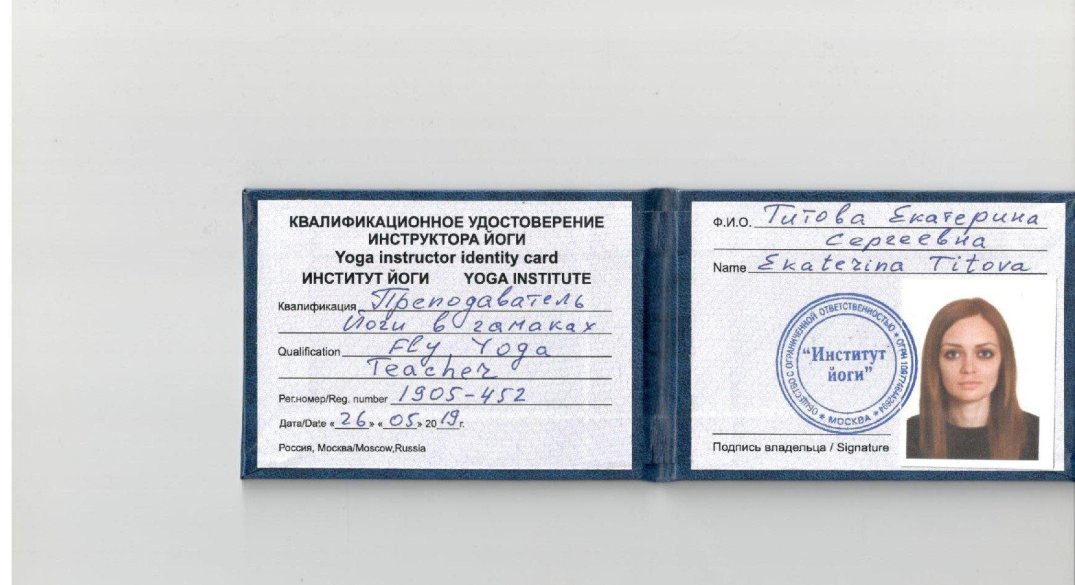 КВАЛИФИКАЦИОННОЕ УДОСТОВЕРЕНИЕ
ИНСТРУКТОРА ЙОГИ
Yoga instructor identity card
ИНСТИТУТ ЙОГИ YOGA INSTITUTE
Квалификация Преподаватель
Йоги в гамаках
Qualification Fly Yoga
Teacher
Рег.номер/Reg. number 1905-452
Дата/Date «26» «05» 2019г.
Россия, Москва/Moscow,Russia
Ф.И.О. Титова Екатерина
Сергеевна
Name Ekaterina Titova
ОБЩЕСТВО С ОГРАНИЧЕННОЙ ОТВЕТСТВЕННОСТЬЮ * ОГРН
* МОСКВА *
"Институт
йоги"
Подпись владельца / Signature